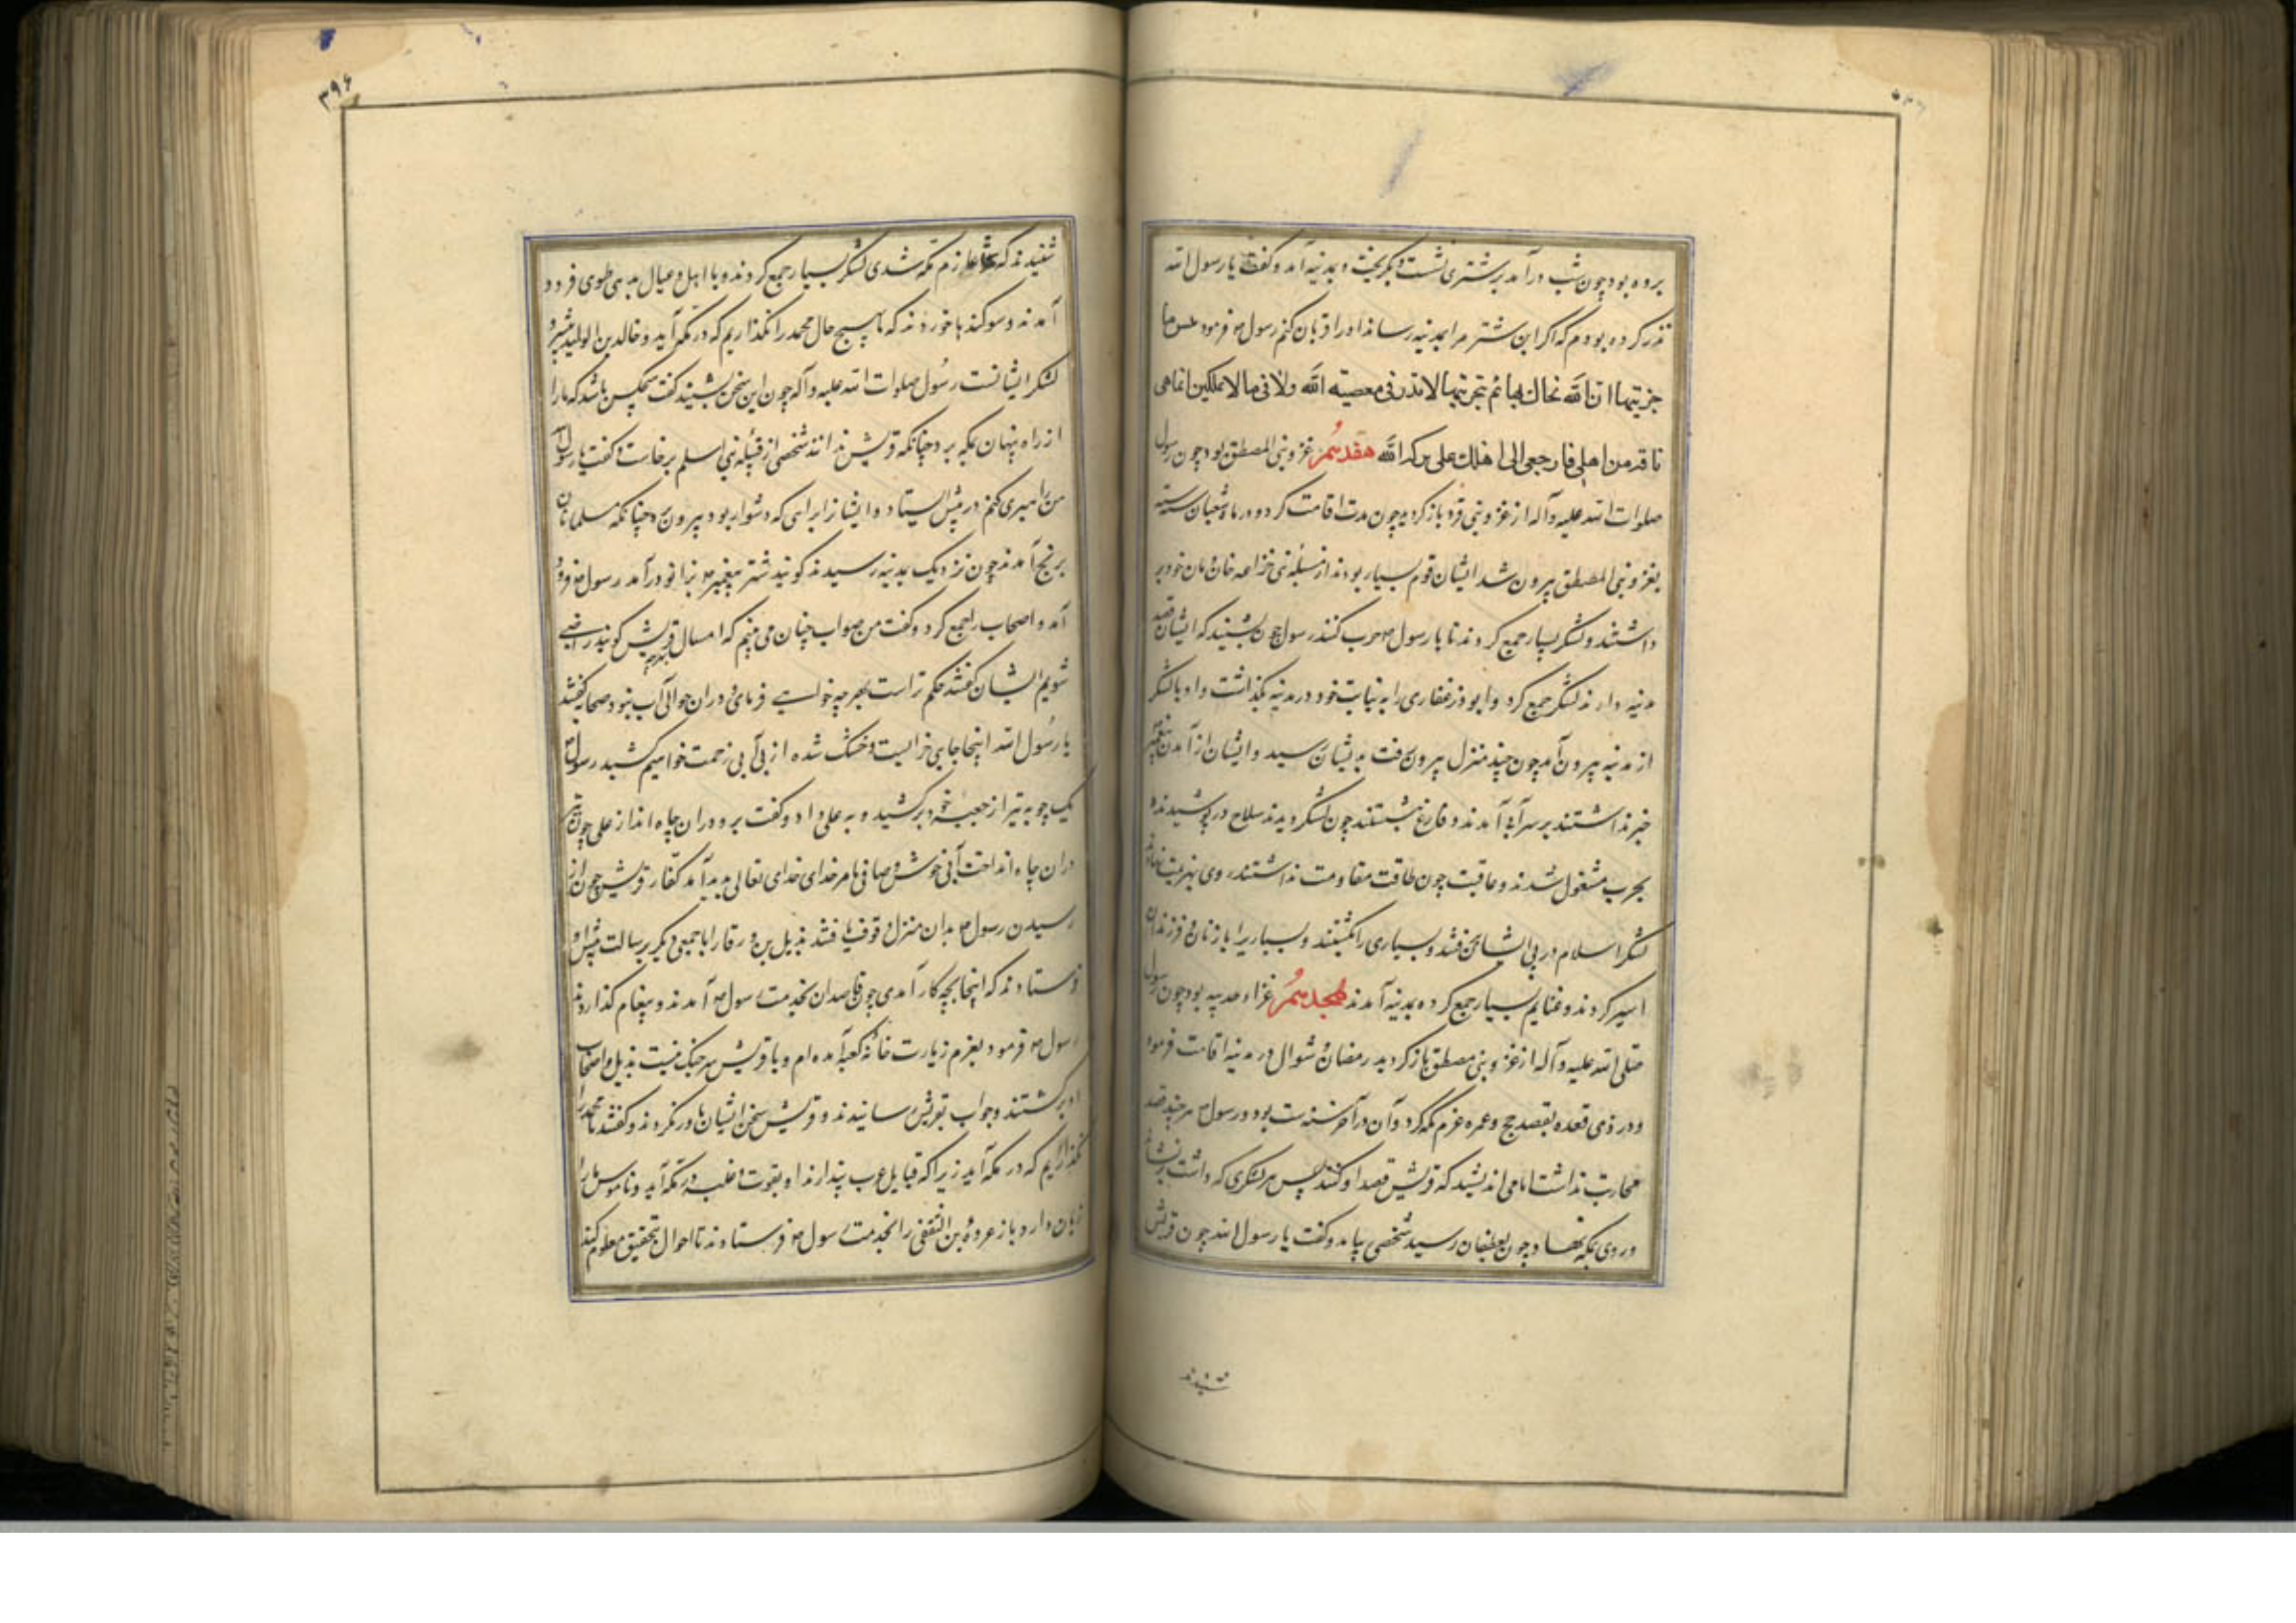 برده بود چون شب درآمد بر شتری نشست و بگریخت و بمدینه آمد و گفت یا رسول الله
نذر کرده بودم که اگر این شتر مرا بمدینه رساند او را قربان کنم رسول ص فرمود بئس ما
جزیتها ان الله نجاك بها ثم تجزیها لا نذر فی معصیة الله ولا فی ما لا تملکین انما هی
ناقة من اهلی فارجعی الی اهلك علی برکة الله هفدهم غزو بنی المصطلق بود چون رسول
صلوات الله علیه وآله از غزو بنی قرد باز گردید چون مدت اقامت کرد و در ماه شعبان سنه سته
بغزو بنی المصطلق بیرون شد ایشان قوم بسیار بودند از قبیله بنی خزاعه خان و مان خود بر
داشتند و لشکر بسیار جمع کردند تا با رسول ص حرب کنند رسول چون بشنید که ایشان قصد
مدینه دارند لشکر جمع کرد و ابوذر غفاری را به نیابت خود در مدینه بگذاشت و او با لشکر
از مدینه بیرون آمد چون چند منزل بیرون رفت به ایشان رسید و ایشان از آمدن پیغمبر
خبر نداشتند بر سر آب آمدند و فارغ نشستند چون لشکر دیدند سلاح در پوشیدند و
بحرب مشغول شدند و عاقبت چون طاقت مقاومت نداشتند روی بهزیمت نهادند
لشکر اسلام در پی ایشان برفتند و بسیاری را بکشتند و بسیاری را با زنان و فرزندان
اسیر کردند و غنایم بسیار جمع کرده بمدینه آمدند هجدهم غزاء حدیبیه بود چون رسول
صلی الله علیه وآله از غزو بنی مصطلق باز گردید رمضان و شوال در مدینه اقامت فرمود
و در ذی قعده بقصد حج و عمره عزم مکه کرد و آن در آخر سنه ست بود و رسول ص هر چند قصد
محاربت نداشت اما می اندیشید که قریش قصد او کنند پس هر لشکری که داشت برنشاند
و روی بمکه نهاد و چون بعسفان رسید شخصی بیامد و گفت یا رسول الله چون قریش
شنیدند
۳۹۶
شنیدند که عازم مکه شدی لشکر بسیار جمع کردند و با اهل و عیال بذی طوی فرود
آمدند و سوکندها خوردند که بهیچ حال محمد را نگذاریم که در مکه آید و خالد بن الولید پیشرو
لشکر ایشانست رسول صلوات الله علیه وآله چون این سخن بشنید گفت هیچکس باشد که ما را
از راه پنهان بمکه برد چنانکه قریش ندانند شخصی از قبیله بنی اسلم برخاست و گفت یا رسول الله
من راهبری کنم در پیش ایستاد و ایشان را براهی که دشوار بود بیرون برد چنانکه مسلمانان
برنج آمدند چون نزدیک مدینه رسیدند گویند شتر پیغمبر ص بزانو درآمد رسول ص فرود
آمد و اصحاب را جمع کرد و گفت من صواب چنان می بینم که امسال بهرچه قریش گویند راضی
شویم ایشان گفتند حکم تراست بهر چه خواهی فرمای و در آن حوالی آب نبود صحابه گفتند
یا رسول الله اینجا چاهی خرابست و خشک شده از بی آبی زحمت خواهیم کشید رسول ص
یک چوبه تیر از جعبه خود برکشید و به علی داد و گفت برو در آن چاه انداز علی چون تیر
در آن چاه انداخت آبی خوش و صافی بامر خدای خدای تعالی پدید آمد کفار قریش چون از
رسیدن رسول ص بدان منزل وقوف یافتند بدیل بن ورقا را با جمعی دیگر برسالت پیش او
فرستادند که اینجا بچه کار آمدی چون قاصدان بخدمت رسول ص آمدند و پیغام گذاردند
رسول ص فرمود بعزم زیارت خانه کعبه آمده ام و با قریش سر جنگ نیست بدیل و اصحاب
او برگشتند و جواب بقریش رسانیدند و قریش سخن ایشان باور نکردند و گفتند ما محمد را
نگذاریم که در مکه آید زیرا که قبایل عرب پندارند او بقوت و غلبه در مکه آید و ناموس ما را
زیان دارد باز عروة بن الثقفی را بخدمت رسول ص فرستادند تا احوال بتحقیق معلوم کند